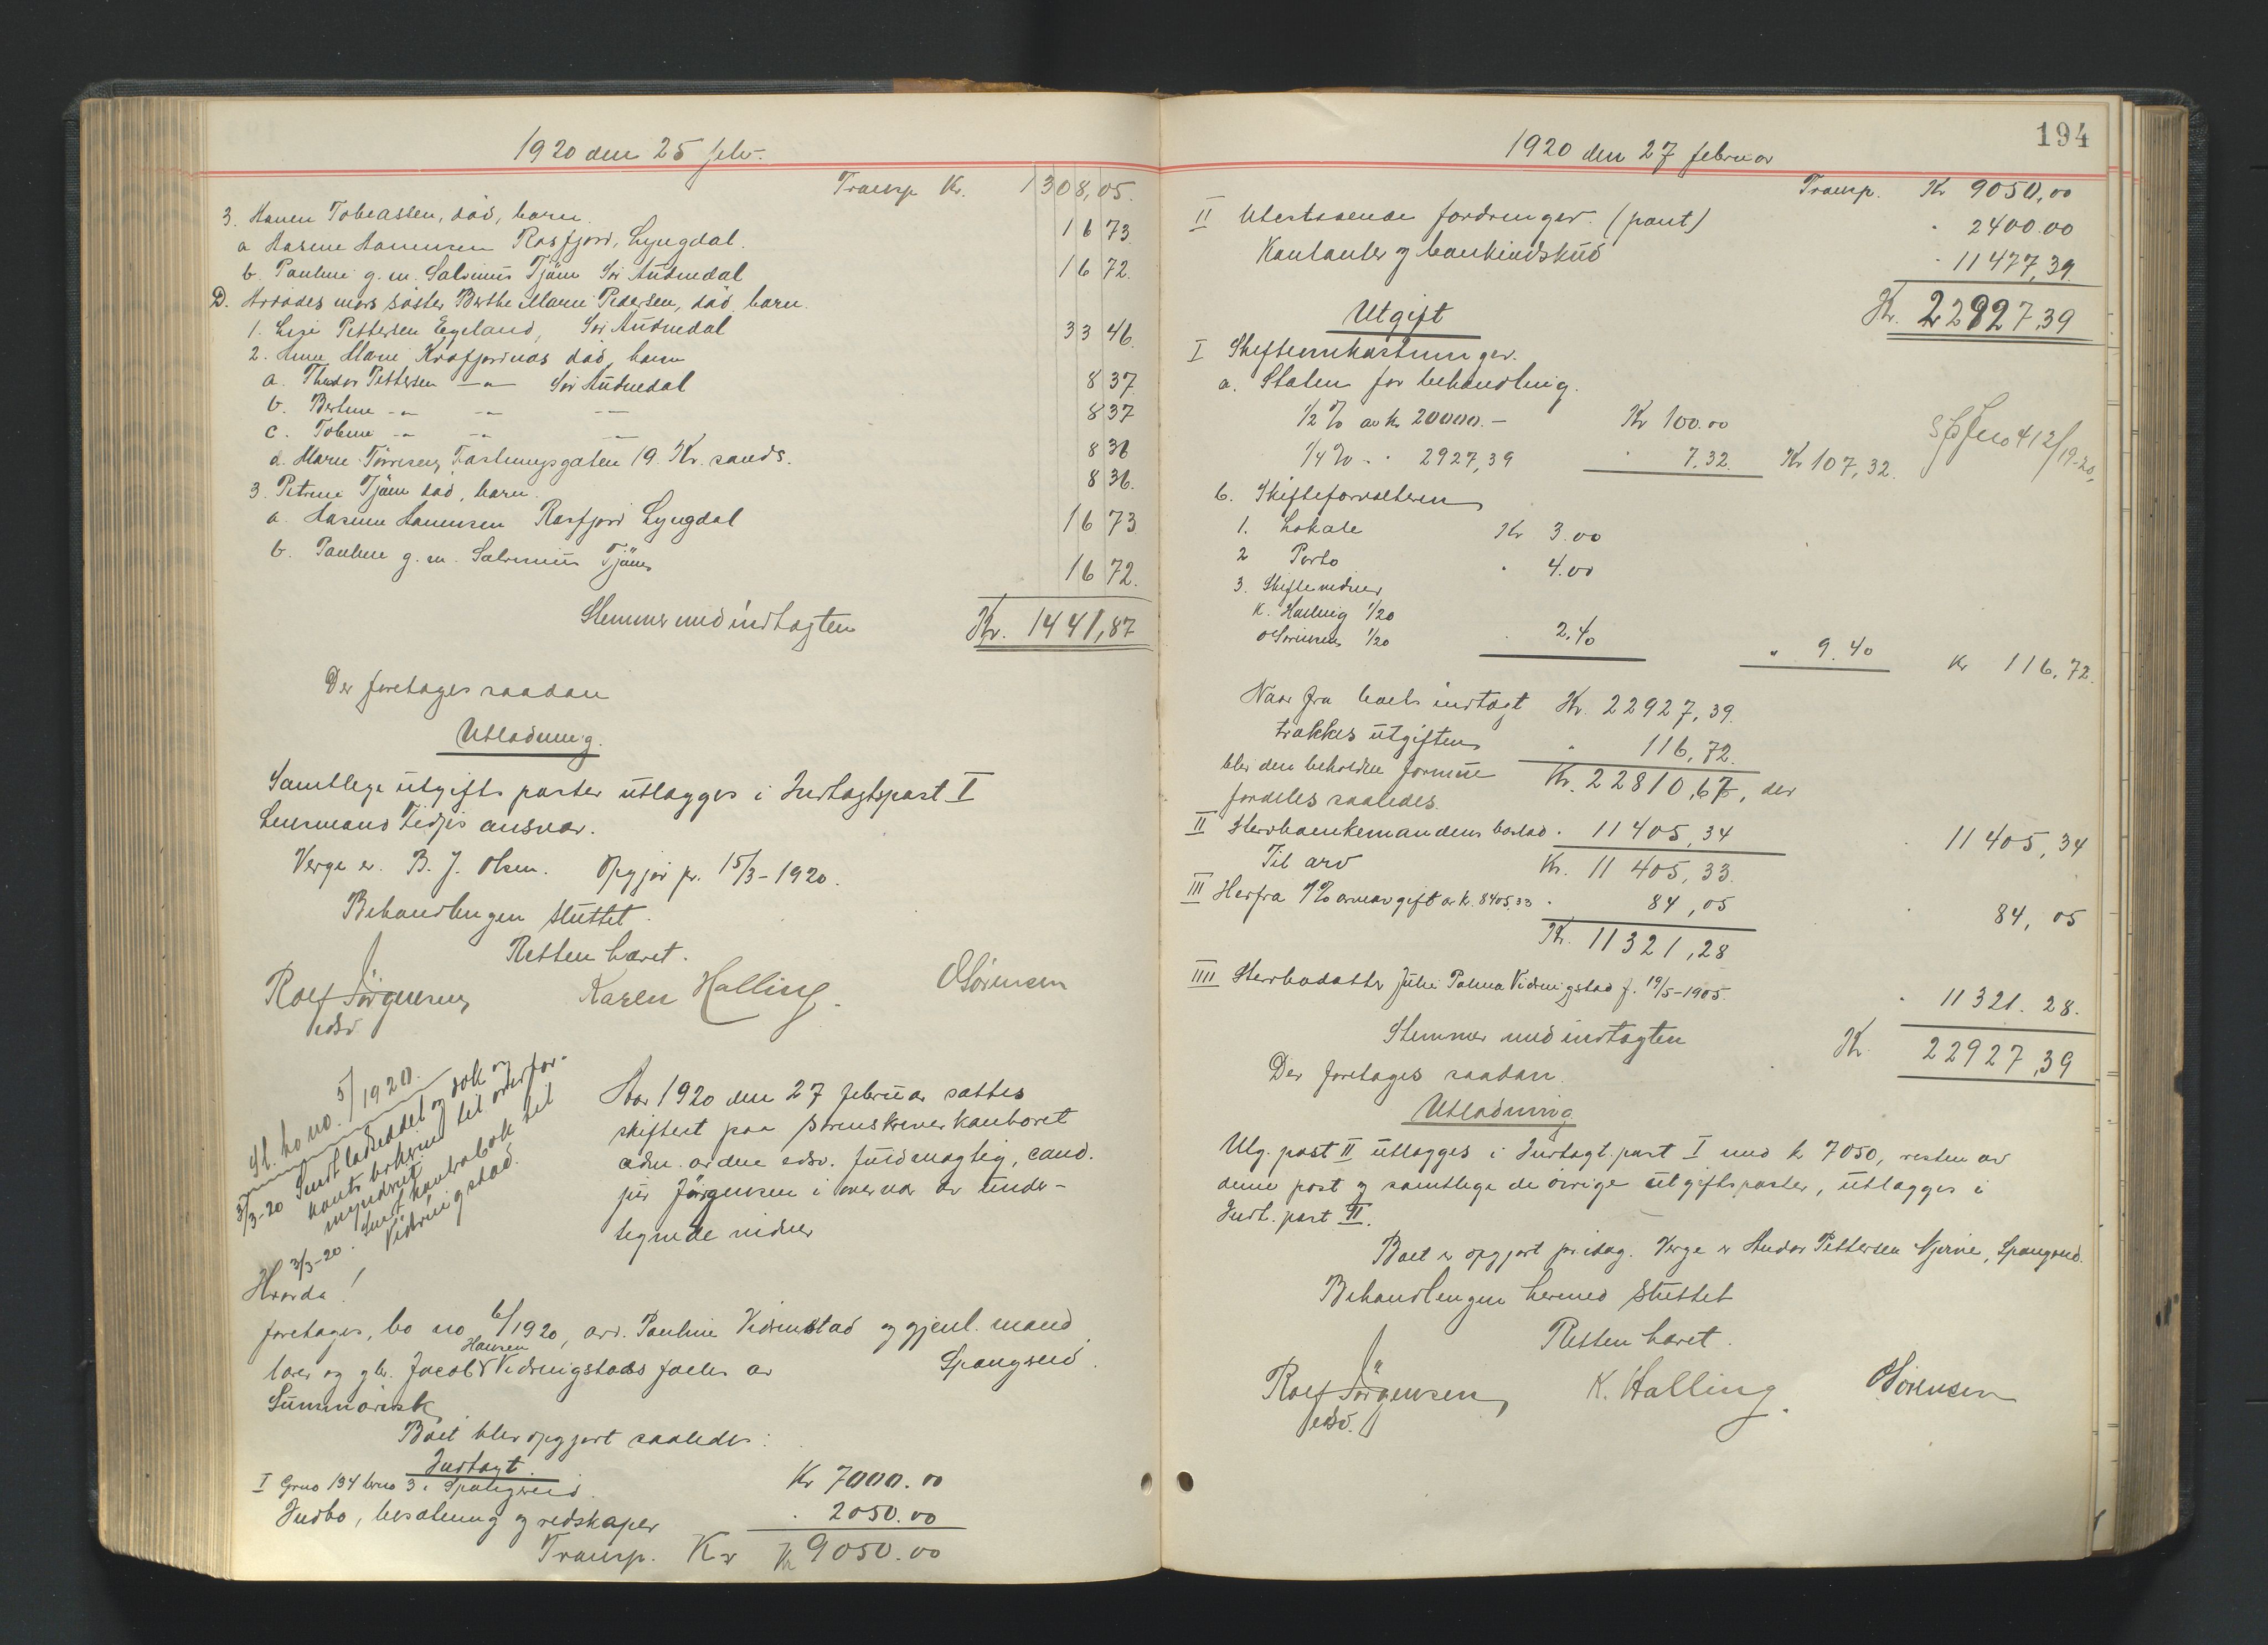 1920 den 25 febr.
Transp Kr. 1308,05.
3. Hanen Tobiassen, död, barn.
a Aasene Hanensen Rosfjord, Lyngdal. 16 73
b. Pauline g. m. Salvinus Tjäm Sör Audnedal 16 72.
D. Avdödes mors söster Berthe Marie Pedersen, död, barn.
1. Lise Pettersen Egeland, Sör Audnedal 33 46.
2. Anne Marie död, barn
a. Theodor Pettersen -"- Sör Audnedal 8 37
b. Bertine -"- -"- -"- 8 37
c. Tobine -"- -"- -"- 8 36
d. Marie Törresen, Fästningsgaten 19. Kr. sands. 8 36.
3. Petrine Tjäm död, barn.
a. Aasene Hanensen Rosfjord Lyngdal 16 73
b. Pauline g. m. Salvinus Tjäm 16 72.
Stemmer med indtägten Kr. 1441,87
Der foretages saadan
Utlodning.
Samtlige utgifts poster utlægges i Indtägtspost I
Lensmand Fidjes ansvar.
Verge er B. J. Olsen. Opgjör pr. 15/3-1920.
Behandlingen sluttet.
Retten hævet.
Rolf Jörgensen
edsv
Karen Halling.
O Sörensen
Sl. bo no. 5/1920.
3/3-20 Sendt og dok og
til overfor-
myndriet
3/3-20. Sendt kontrabok til
Vidringstad.
Aar 1920 den 27 februar sattes
skifteret paa sorenskriverkontoret
adm. av den edsv. fuldmægtig, cand.
jur Jörgensen i overvær av under-
tegnede vidner
Hvorda!
foretages, bo no 6/1920, avd. Pauline Vidrinstad og gjenl. mand
lærer og gbr. Jacob Hansen Vidringstads fælles av Spangreid.
Summarisk
Boet blev opgjort saaledes:
Indtägt.
I Grno 134 brno 3 i Spangreid. Kr 7000.00
Indbo, besætning og redskaper " 2050.00
Transp. Kr Kr 9050.00
194
1920 den 27 februar
Transp. Kr 9050,00
II Utestaaende fordringer. (pant) " 2400.00
Kontanter og bankindskud " 11477,39.
Kr. 22927,39
Utgift
I Skifteomkostninger.
a. Staten for behandling.
1/2 % av kr 20000.- Kr 100.00
1/4 % - " 2927,39 " 7,32. Kr 107,32.
412/19-20,
b. Skifteforvalteren
1. Lokale Kr 3.00
2 Porto " 4.00
3. Skiftevidner
K. Halling 1/20
O Sörensen 1/20 " 2,40 " 9.40 Kr 116,72.
Naar fra boets indtägt Kr. 22927,39.
trækkes utgiften " 116,72.
blir den beholdne formue Kr. 22810,67, der
fordeles saaledes.
II Sterboenkemandens boslod " 11405,34 " 11405,34
Til arv Kr. 11405,33.
III Herfra 1% arveavgift av kr. 8405,33 " 84,05 " 84,05
Kr. 11321,28
IIII Sterbodatter Julie Palma Vidringstad f. 19/5-1905. " 11321.28.
Stemmer med indtägten Kr. 22927,39
Der foretages saadan
Utlodning
Utg. post II utlægges i Indtägt. post I med kr 7050, resten av
denne post og samtlige de övrige utgiftsposter, utlægges i
Indt. post II.
Boet er opgjort pr idag. Verge er Andor Pettersen Njerve, Spangreid.
Behandlingen hermed sluttet
Retten hævet.
Rolf Jörgensen
edsv.
K. Halling.
O Sörensen